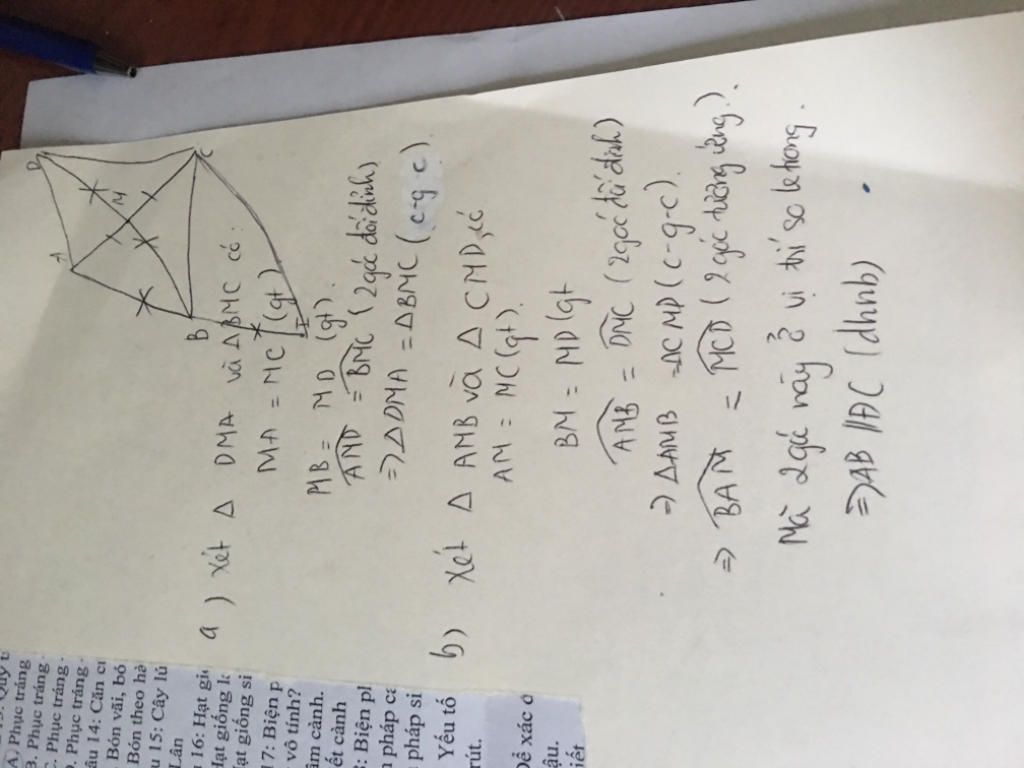 D
C
A
M
B
I
a) Xét △ DMA và △BMC có:
MA = MC (gt)
MB = MD (gt).
AMD = BMC (2 góc đối đỉnh)
=> △ DMA = △BMC (c-g c).
b) Xét △ AMB và △ CMD, có
AM = MC (gt).
BM = MD (gt
AMB = DMC (2 góc đối đỉnh)
=> △AMB = △CMD (c-g-c).
=> BAM = MCD (2 góc tương ứng).
Mà 2 gó này ở vị trí so le trong.
=> AB // DC (dhnb)
A. Phục tráng
B. Phục tráng
C. Phục tráng
D. Phục tráng
âu 14: Căn c
Bón vãi, bó
Bón theo hà
u 15: Cây lú
Lân
16: Hạt gi
Hạt giống
ạt giống si
17: Biện p
vô tính?
âm cành.
ết cành
: Biện ph
pháp ca
pháp si
Yếu tố
rút.
Để xác
ậu.
iết